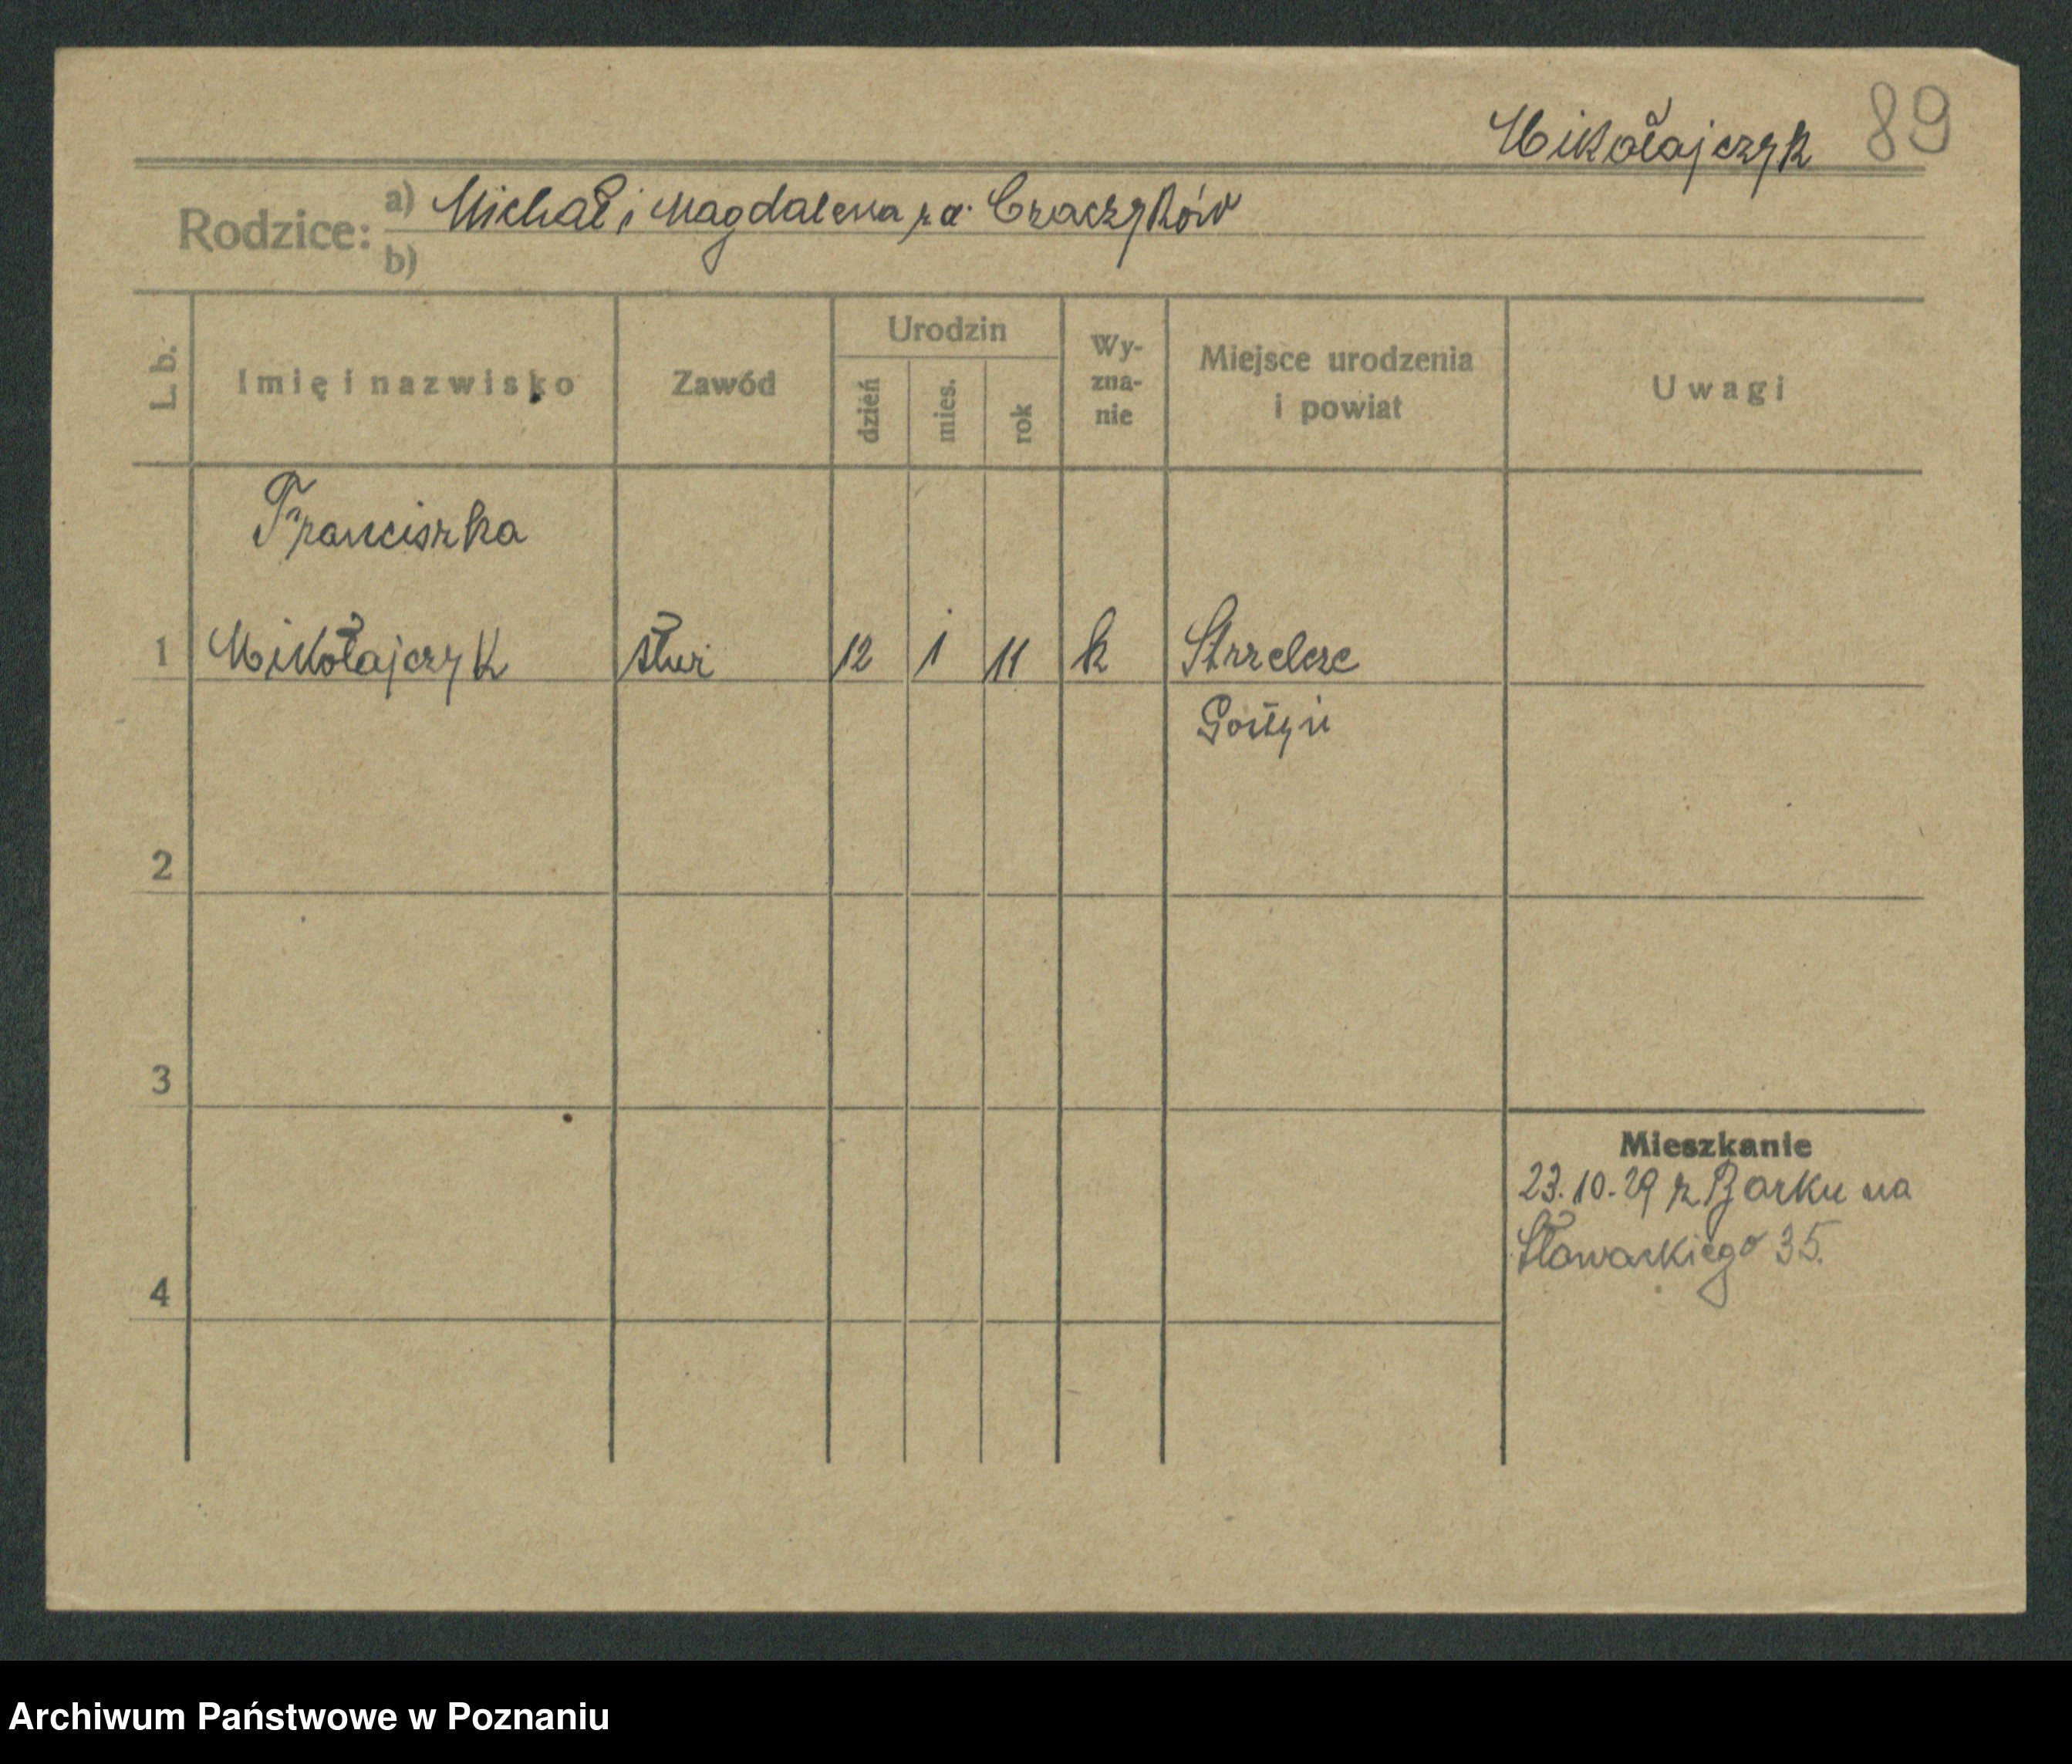 Mikołajczyk 89
Rodzice: a) Michał i Magdalena za. Craczyków
b)
L. b. Imię i nazwisko Zawód Urodzin dzień mies. rok Wy-zna-nie Miejsce urodzenia i powiat Uwagi
Franciszka
1 Mikołajczyk służ 12 1 11 k Strzelcze
Gostyń
2
3
Mieszkanie
23.10.29 z Borku na
Słowackiego 35.
4
Archiwum Państwowe w Poznaniu